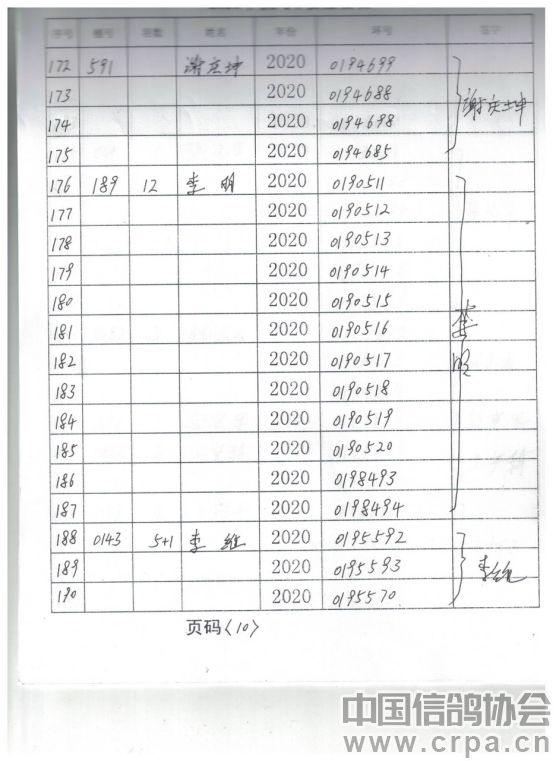 序号 棚号 羽数 姓名 年份 环号 签字
172 591 谢庆坤 2020 0194699
173 2020 0194688 谢庆坤
174 2020 0194698
175 2020 0194685
176 189 12 李明 2020 0190511
177 2020 0190512
178 2020 0190513
179 2020 0190514
180 2020 0190515
181 2020 0190516 李明
182 2020 0190517
183 2020 0190518
184 2020 0190519
185 2020 0190520
186 2020 0198493
187 2020 0198494
188 0143 5+1 李继 2020 0195592
189 2020 0195593 李继
190 2020 0195570
页码〈10〉
中国信鸽协会
www.crpa.cn